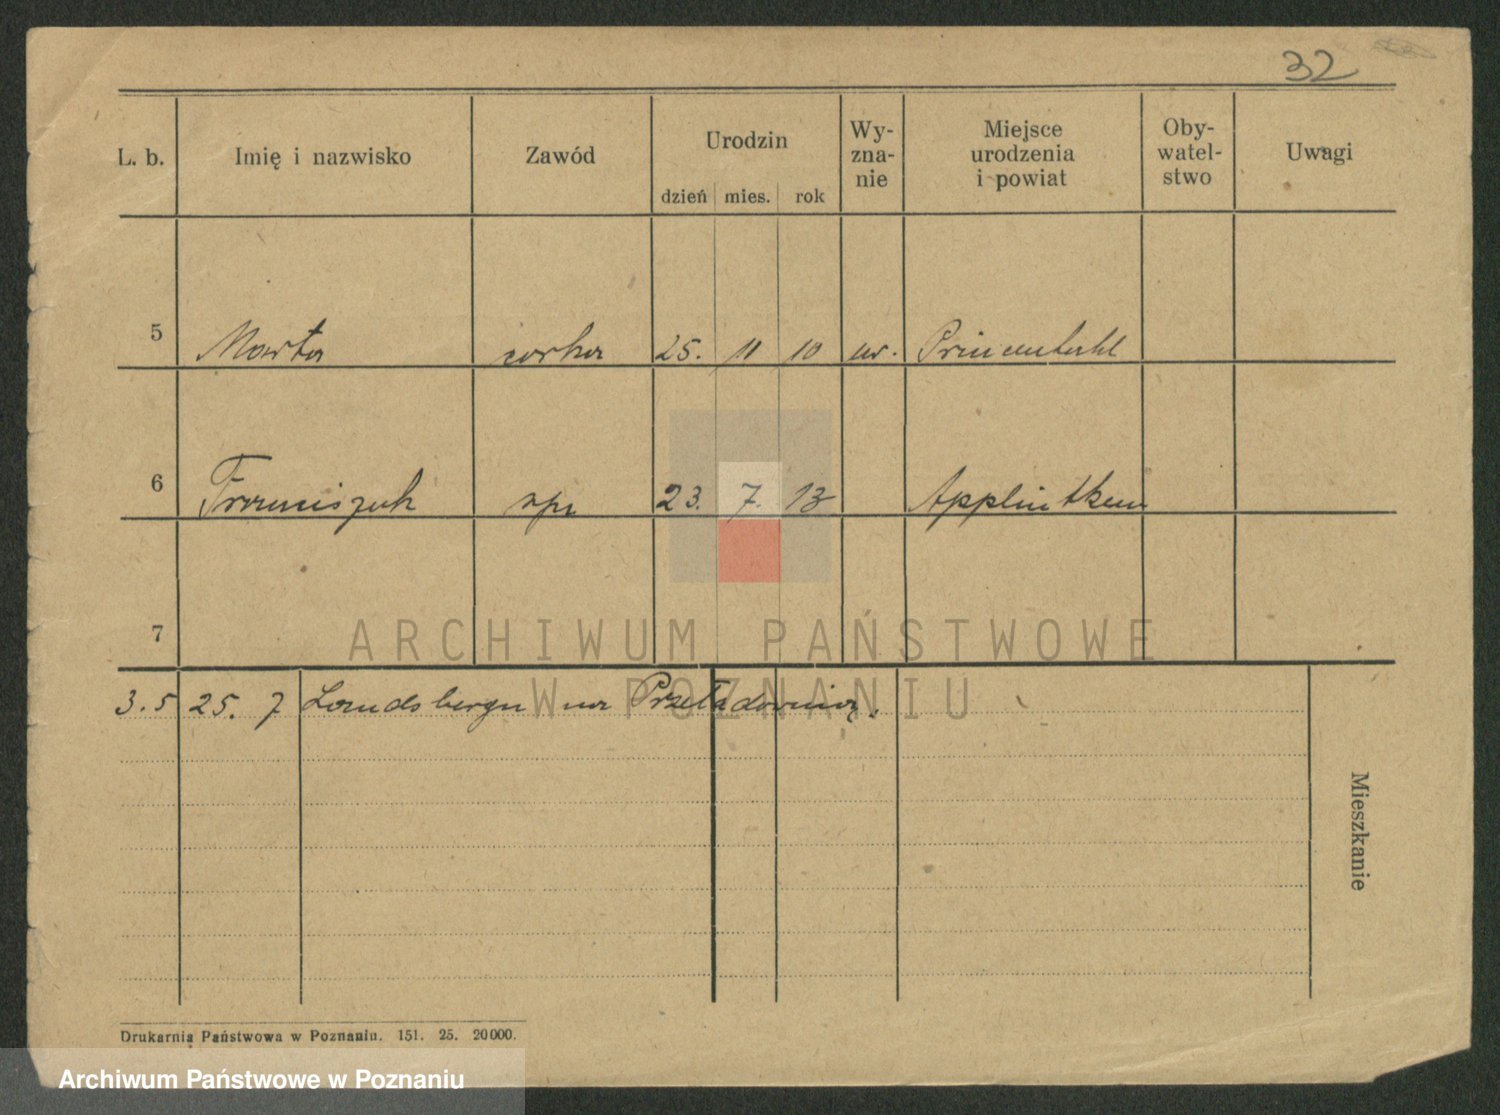 32
L. b. Imię i nazwisko Zawód Urodzin dzień mies. rok Wy-zna-nie Miejsce urodzenia i powiat Oby-watel-stwo Uwagi
5 Marta corka 25. 11 10 Prinzenthal
6 Franciszek syn 23. 7. 13
7
ARCHIWUM PAŃSTWOWE
W POZNANIU
3.5 25. 7 Landsbergu na Przeładownią.
Mieszkanie
Drukarnia Państwowa w Poznaniu. 151. 25. 20000.
Archiwum Państwowe w Poznaniu